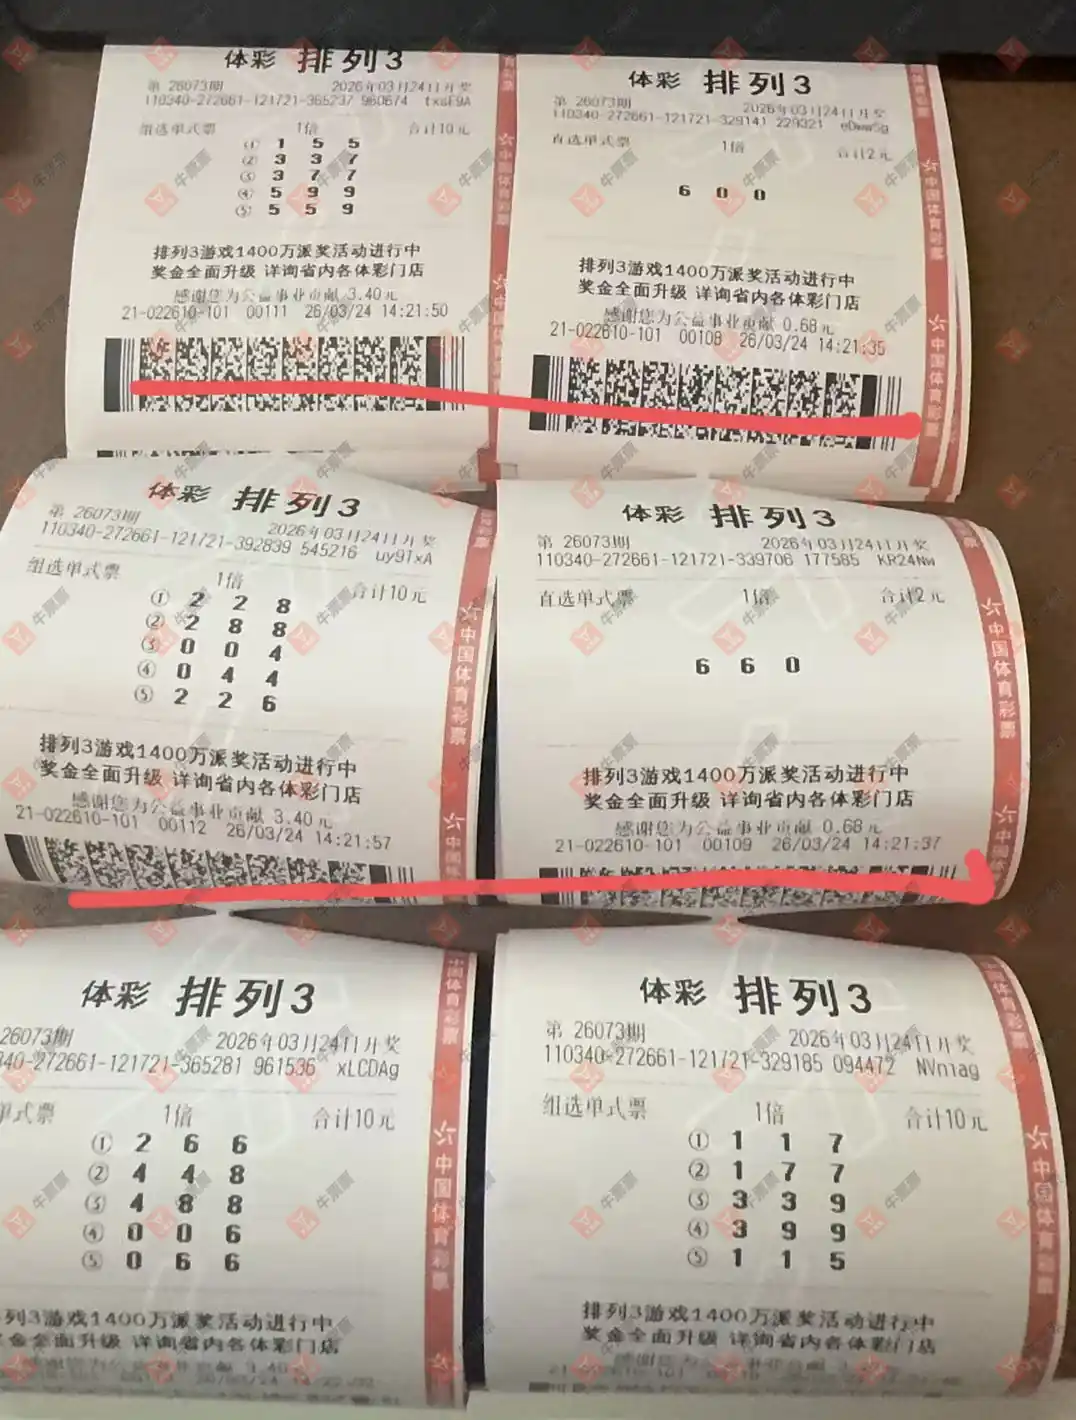 体彩 排列3
第 26073期 2026年03月24日开奖
110340-272661-121721-365237 960674 txsF9A
组选单式票 1倍 合计10元
① 1 5 5
② 3 3 7
③ 3 7 7
④ 5 9 9
⑤ 5 5 9
排列3游戏1400万派奖活动进行中
奖金全面升级 详询省内各体彩门店
感谢您为公益事业贡献 3.40元
21-022610-101 00111 26/03/24 14:21:50
体彩 排列3
第 26073期 2026年03月24日开奖
110340-272661-121721-329141 229321 eDww5g
直选单式票 1倍 合计2元
6 0 0
排列3游戏1400万派奖活动进行中
奖金全面升级 详询省内各体彩门店
感谢您为公益事业贡献 0.68元
21-022610-101 00108 26/03/24 14:21:35
中国体育彩票
中国体育彩票
体彩 排列3
第 26073期 2026年03月24日开奖
110340-272661-121721-392839 545216 uy91xA
组选单式票 1倍 合计10元
① 2 2 8
② 2 8 8
③ 0 0 4
④ 0 4 4
⑤ 2 2 6
排列3游戏1400万派奖活动进行中
奖金全面升级 详询省内各体彩门店
感谢您为公益事业贡献 3.40元
21-022610-101 00112 26/03/24 14:21:57
中国体育彩票
体彩 排列3
第 26073期 2026年03月24日开奖
110340-272661-121721-339706 177585 KR24Nw
直选单式票 1倍 合计2元
6 6 0
排列3游戏1400万派奖活动进行中
奖金全面升级 详询省内各体彩门店
感谢您为公益事业贡献 0.68元
21-022610-101 00109 26/03/24 14:21:37
中国体育彩票
体彩 排列3
26073期 2026年03月24日开奖
340-272661-121721-365281 961536 xLCDAg
单式票 1倍 合计10元
① 2 6 6
② 4 4 8
③ 4 8 8
④ 0 0 6
⑤ 0 6 6
列3游戏1400万派奖活动进行中
金全面升级 详询省内各体彩门店
中国体育彩票
体彩 排列3
第 26073期 2026年03月24日开奖
110340-272661-121721-329185 094472 NVmag
组选单式票 1倍 合计10元
① 1 1 7
② 1 7 7
③ 3 3 9
④ 3 9 9
⑤ 1 1 5
排列3游戏1400万派奖活动进行中
奖金全面升级 详询省内各体彩门店
中国体育彩票
牛票票